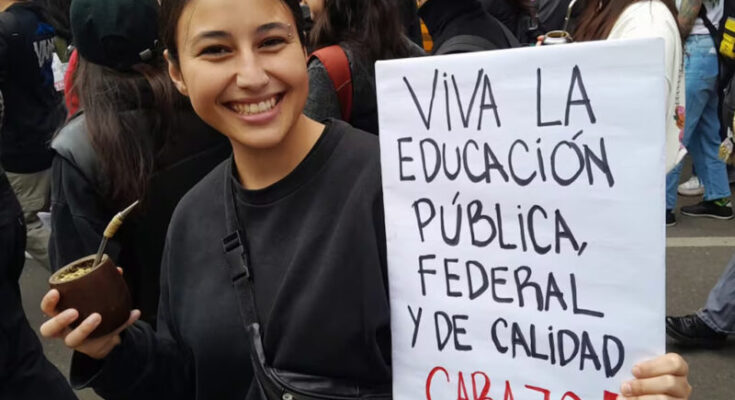 VIVA LA
EDUCACIÓN
PÚBLICA,
FEDERAL
Y DE CALIDAD